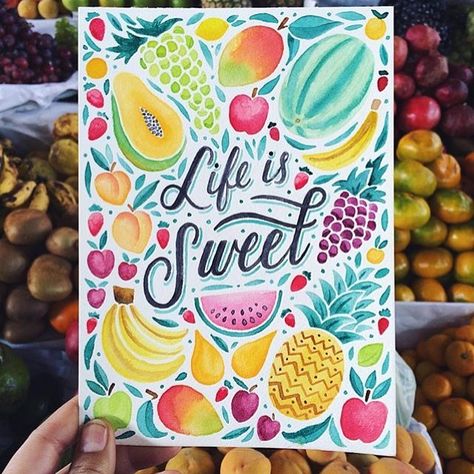 Life is
Sweet